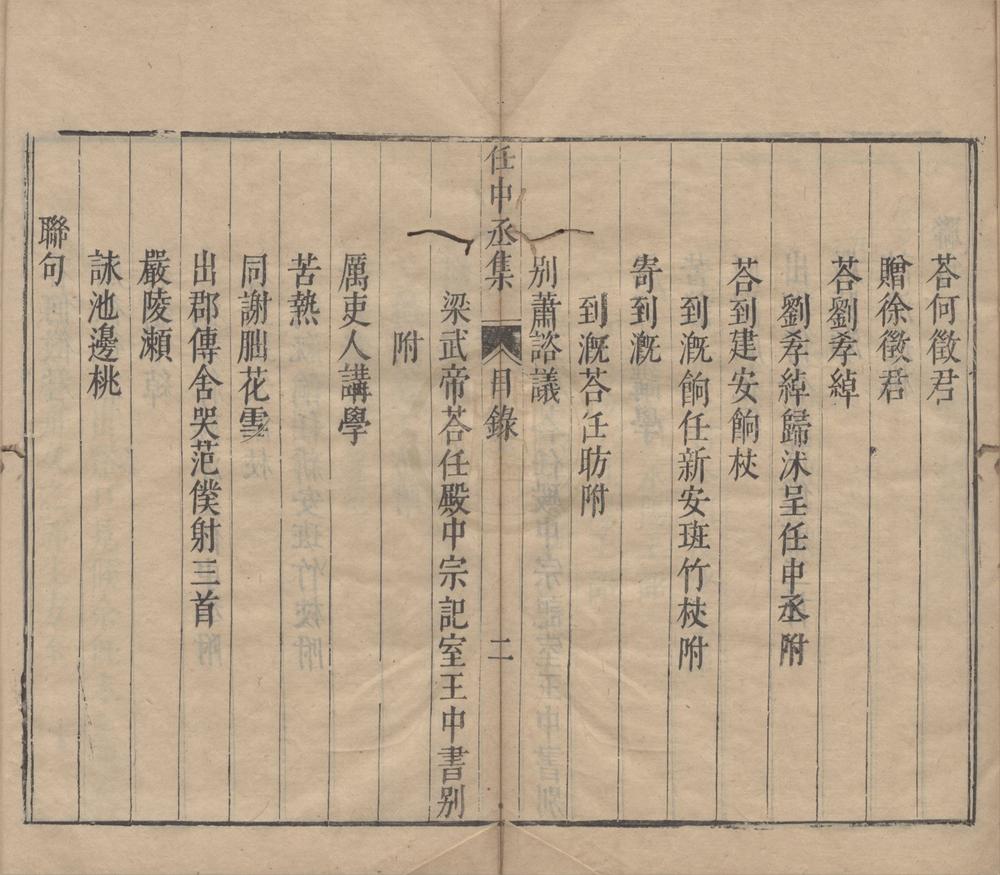 荅何徵君
贈徐徵君
荅劉孝綽
劉孝綽歸沐呈任中丞附
荅到建安餉杖
到溉餉任新安班竹杖附
寄到溉
到溉荅任昉附
別蕭諮議
任中丞集 目錄 二
梁武帝荅任殿中宗記室王中書別
附
厲吏人講學
苦熱
同謝朏花雪
出郡傳舍哭范僕射三首
嚴陵瀨
詠池邊桃
聯句